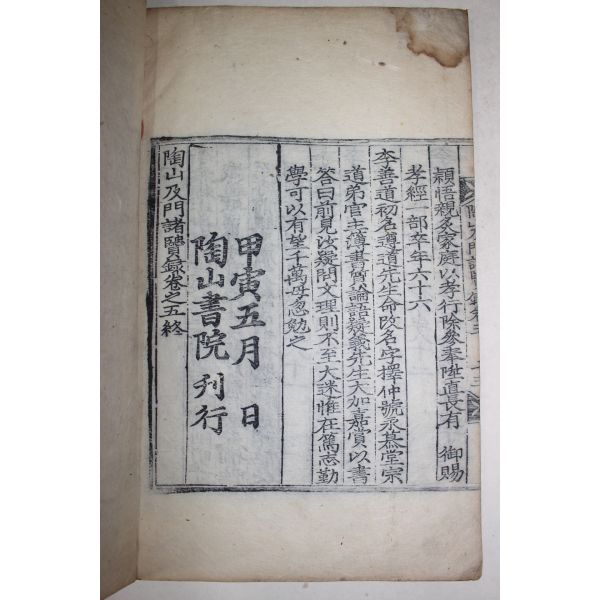 穎悟親炙家庭以孝行除參奉陞直長有　御賜
孝經一部卒年六十六
李善道初名遵道先生命改名字擇仲號永慕堂宗
道弟官主簿書質論語疑義先生大加嘉賞以書
答曰前見汝疑問文理則不至大迷惟在篤志勤
學可以有望千萬毋忽勉之
甲寅五月　日
陶山書院刊行
陶山及門諸賢錄卷之五終